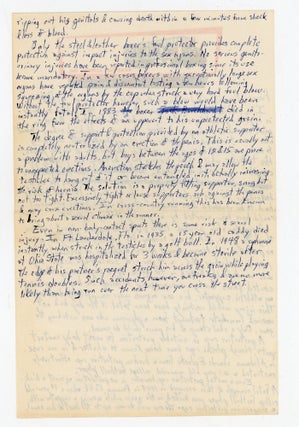 ripping out his genitals & causing death within a few minutes from shock
& loss of blood.
Only the steel & leather boxer's foul protector provides complete
protection against impact injuries to the sex organs. No serious genito-
urinary injuries have been reported in professional boxing since its use
became mandatory. In a few cases boxers with exceptionally large sex
organs have reported pain & discomfort lasting a few hours following
squeezing of the organs by the cup when struck a very hard foul blow.
Without the foul protector however, such a blow would have been
instantly fatal. In 1883 a boxer died in
the ring from the effects of an uppercut to his unprotected groin.
The degree of support & protection provided by an athletic supporter
is completely neutralized by an erection of the penis. This is usually not
a problem with adults, but boys between the ages of 12 & 15 are prone
to unexpected erections. An erection stretches the pouch & may allow the
testicles to hang out of it or become entangled with actually increasing
the risk of hernia. The solution is a properly fitting supporter, snug but
not too tight. Excessively tight or loose supporters rub against the penis
& may cause erections. In cross-country running this has been known
to bring about a sexual climax in the runner.
Even in non-body-contact sports there is some risk of sexual
injury. In Ft. Lauderdale, Fla. in 1935 a 15 year old caddy died
instantly when struck in the testicles by a golf ball. In 1948 a sophomore
at Ohio State was hospitalized for 3 weeks & became sterile after
the edge of his partner's racquet struck him across the groin while playing
tennis doubles. Such accidents however, are rare & no more
likely than being run over the next time you cross the street.